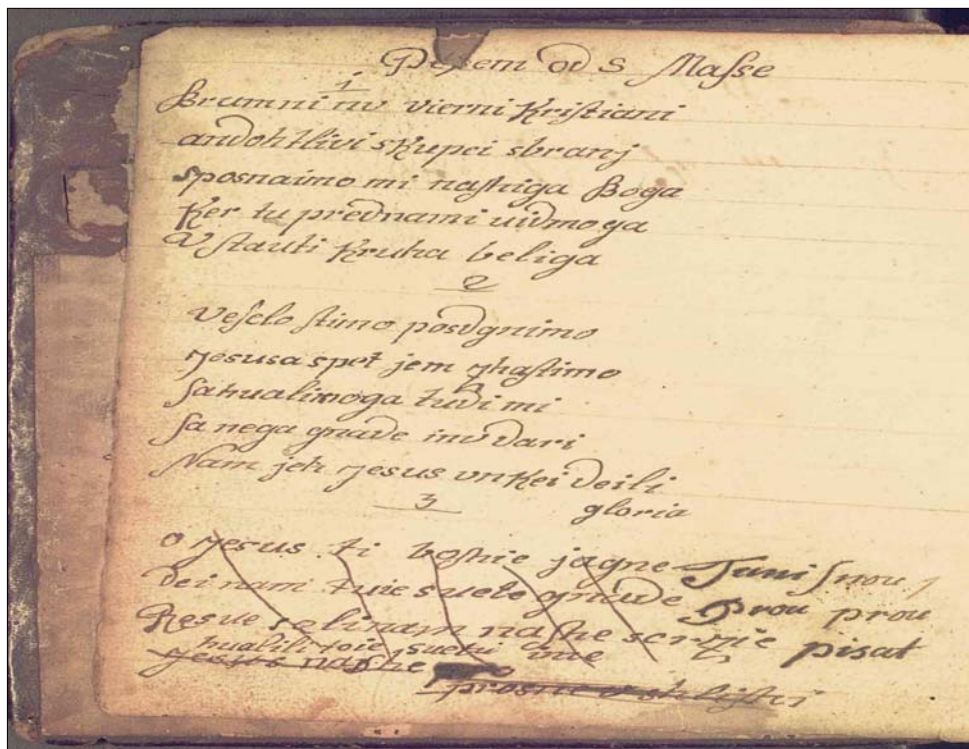 Pesem od S Maſse
1
Brumni nv vierni Kriſtiani
andohtlivi skupei sbranj
sposnaimo mi naſhiga Boga
Ker tu prednami uidmoga
Vſtauti Kruha beliga
2
Veſelo ſtimo posdgnimo
Jesusa spet jem zhaſtimo
ſahualimoga tudi mi
ſa nega gnade inv dari
Nam jeh Jesus vnkei deili
3
gloria
o Jesus ti boſhie jagne
Tuni ſnou
dei nam tuie suete gnade
Prou prou
naſhe serzie
pisat
hualili toie suetu ime
Jesus naſhe